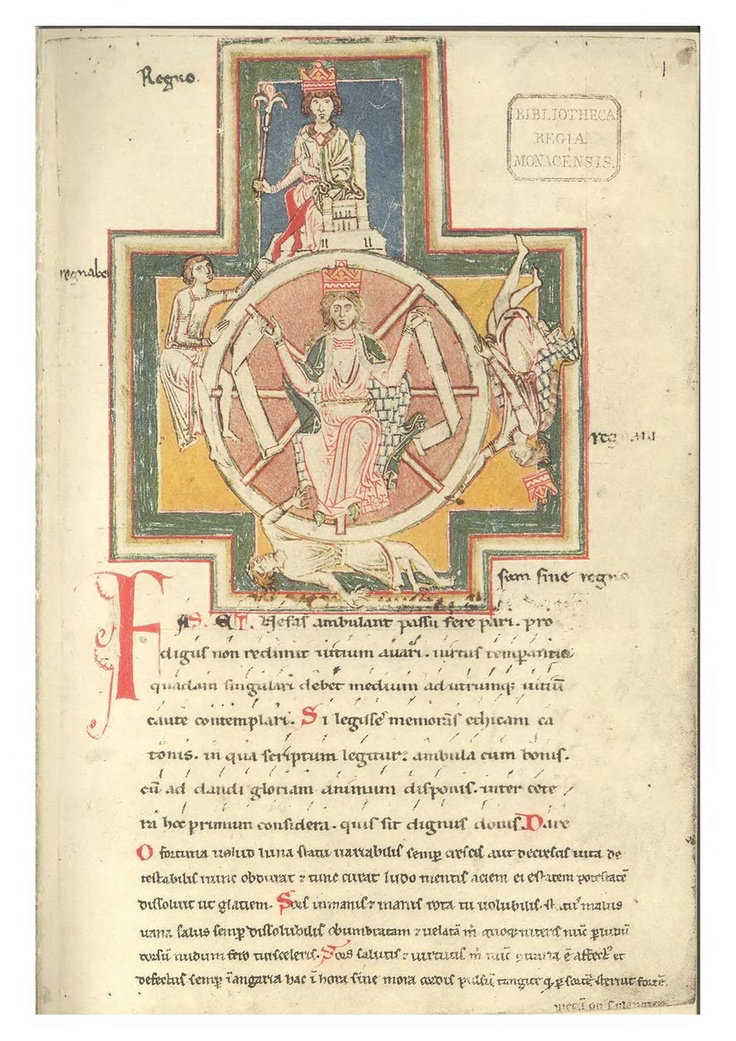 Regno.
1
BIBLIOTHECA
REGIA
MONACENSIS.
regnabo
sum sine regno
FAS ET Nefas ambulant passu fere pari. pro
digus non redimit uitium auari. uirtus temperantia
quadam singulari debet medium ad utrumq; uitiū
caute contemplari. Si legisse memoras ethicam ca
tonis. in qua scriptum legitur: ambula cum bonis.
cū ad dandi gloriam animum disponis. inter cete
ra hoc primum considera. quis sit dignus donis. Dare
O fortuna uelud luna statu uariabilis semp crescis aut decrescis uita de
testabilis nunc obdurat ⁊ tunc curat ludo mentis aciem egestatem potestatē
dissoluit ut glaciem. Sors inmanis ⁊ inanis rota tu uolubilis status malus
uana salus semp dissolubilis obumbratam ⁊ uelatā m quoq; niteris
dorsū nudum fero tui sceleris. Sors salutis ⁊ uirtutis m
defectus semp ī angaria hac ī hora sine mora cordis tangite